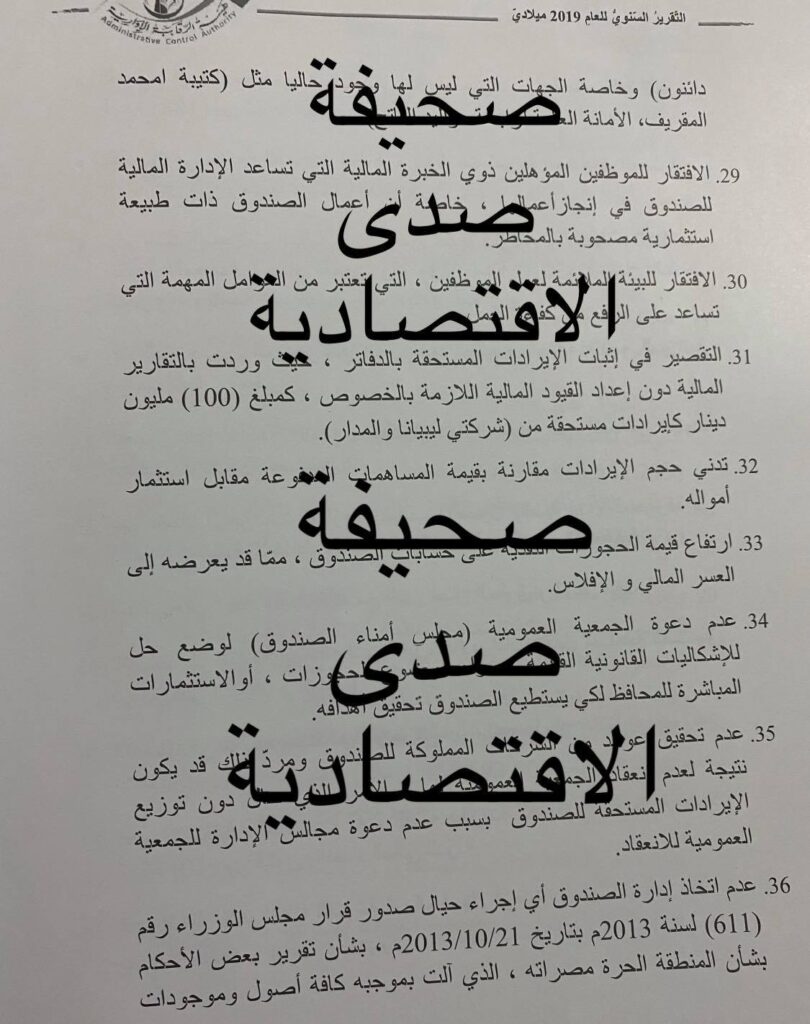 هيئة الرقابة الإدارية
Administrative Control Authority
التقرير السنوي للعام 2019 ميلادي
دائنون) وخاصة الجهات التي ليس لها وجود حاليا مثل (كتيبة امحمد
المقريف، الأمانة
29. الافتقار للموظفين المؤهلين ذوي الخبرة المالية التي تساعد الإدارة المالية
للصندوق في إنجازأعمالها ، خاصة أن أعمال الصندوق ذات طبيعة
استثمارية مصحوبة بالمخاطر.
30. الافتقار للبيئة الملائمة لعمل الموظفين ، التي تعتبر من العوامل المهمة التي
تساعد على الرفع من كفاءة العمل.
31. التقصير في إثبات الإيرادات المستحقة بالدفاتر ، حيث وردت بالتقارير
المالية دون إعداد القيود المالية اللازمة بالخصوص ، كمبلغ (100) مليون
دينار كإيرادات مستحقة من (شركتي ليبيانا والمدار).
32. تدني حجم الإيرادات مقارنة بقيمة المساهمات المدفوعة مقابل استثمار
أمواله.
33. ارتفاع قيمة الحجوزات النقدية على حسابات الصندوق ، ممّا قد يعرضه إلى
العسر المالي و الإفلاس.
34. عدم دعوة الجمعية العمومية (مجلس أمناء الصندوق) لوضع حل
للإشكاليات القانونية الحجوزات ، أوالاستثمارات
المباشرة للمحافظ لكي يستطيع الصندوق تحقيق أهدافه.
35. عدم تحقيق عوائد من الشركات المملوكة للصندوق ومردّ ذلك قد يكون
نتيجة لعدم انعقاد الجمعية العمومية الأمر الذي دون توزيع
الإيرادات المستحقة للصندوق بسبب عدم دعوة مجالس الإدارة للجمعية
العمومية للانعقاد.
36. عدم اتخاذ إدارة الصندوق أي إجراء حيال صدور قرار مجلس الوزراء رقم
(611) لسنة 2013م بتاريخ 2013/10/21م ، بشأن تقرير بعض الأحكام
بشأن المنطقة الحرة مصراته ، الذي آلت بموجبه كافة أصول وموجودات
صحيفة
صدى
الاقتصادية
صحيفة
صدى
الاقتصادية